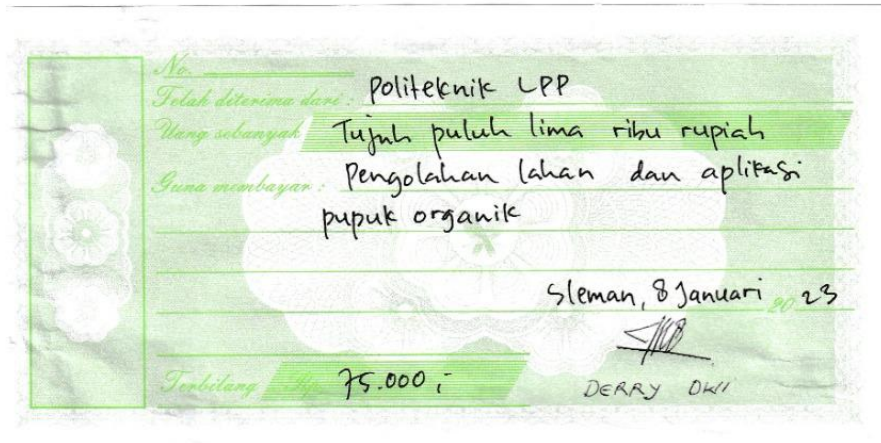 No.
Telah diterima dari : Politeknik LPP
Uang sebanyak Tujuh puluh lima ribu rupiah
Guna membayar : Pengolahan lahan dan aplikasi
pupuk organik
Sleman, 8 Januari 2023
Terbilang Rp. 75.000,-
DERRY DWI